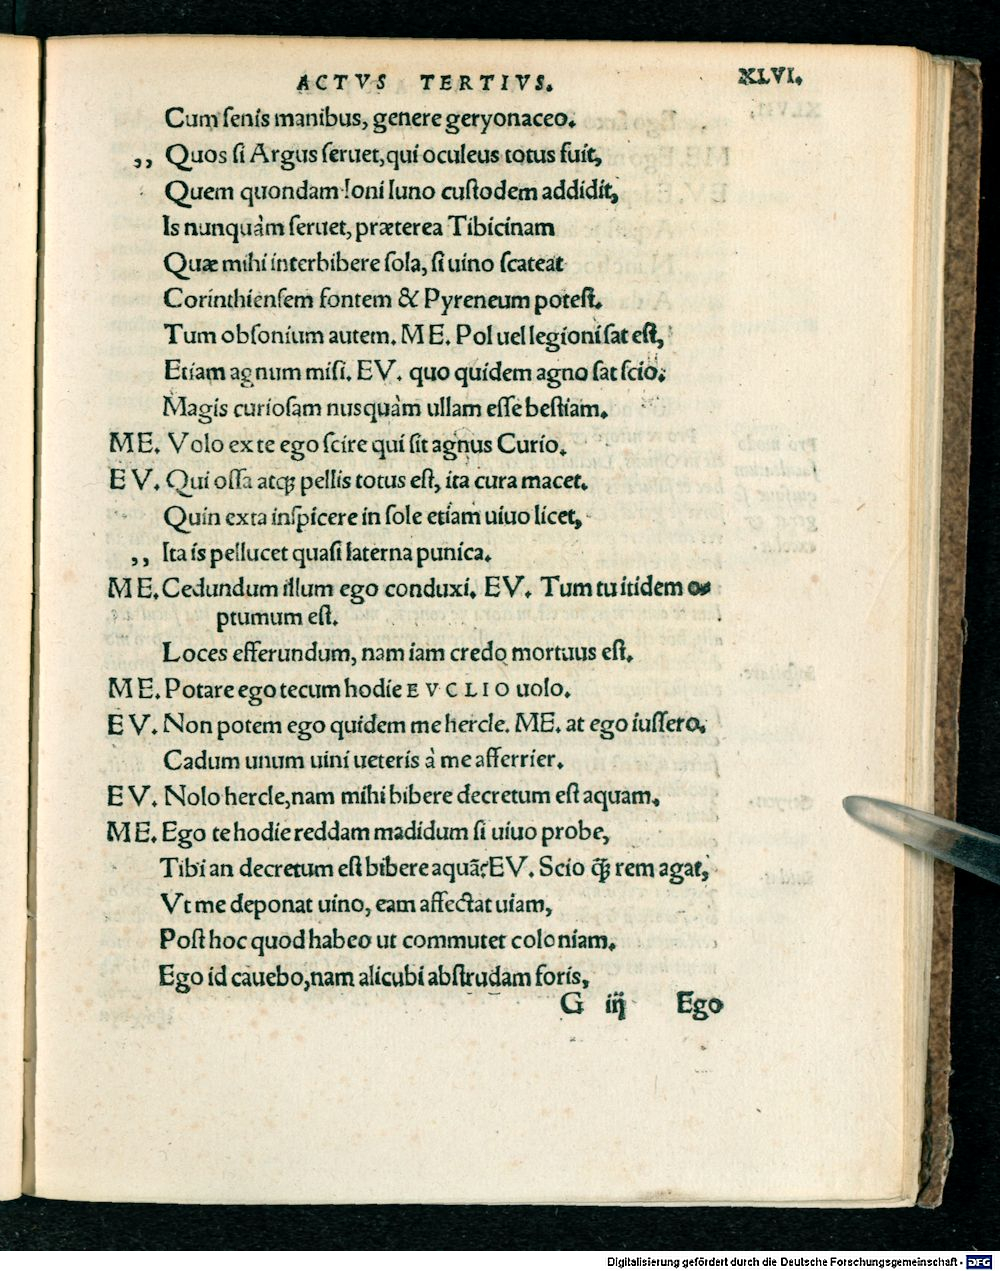 ACTVS TERTIVS. XLVI.
Cum senis manibus, genere geryonaceo.
,, Quos si Argus seruet, qui oculeus totus fuit,
Quem quondam Ioni Iuno custodem addidit,
Is nunquàm seruet, præterea Tibicinam
Quæ mihi interbibere sola, si uino scateat
Corinthiensem fontem & Pyreneum potest.
Tum obsonium autem. ME. Pol uel legioni sat est,
Etiam agnum misi. EV. quo quidem agno sat scio.
Magis curiosam nusquàm ullam esse bestiam.
ME. Volo ex te ego scire qui sit agnus Curio.
EV. Qui ossa atq; pellis totus est, ita cura macet.
Quin exta inspicere in sole etiam uiuo licet,
,, Ita is pellucet quasi laterna punica.
ME. Cedundum illum ego conduxi. EV. Tum tu itidem o-
ptumum est.
Loces efferundum, nam iam credo mortuus est.
ME. Potare ego tecum hodie EVCLIO uolo.
EV. Non potem ego quidem me hercle. ME. at ego iussero.
Cadum unum uini ueteris à me afferrier.
EV. Nolo hercle, nam mihi bibere decretum est aquam.
ME. Ego te hodie reddam madidum si uiuo probe,
Tibi an decretum est bibere aquã? EV. Scio q̃ rem agat,
Vt me deponat uino, eam affectat uiam,
Post hoc quod habeo ut commutet coloniam.
Ego id cauebo, nam alicubi abstrudam foris,
G iij Ego
Digitalisierung gefördert durch die Deutsche Forschungsgemeinschaft - DFG